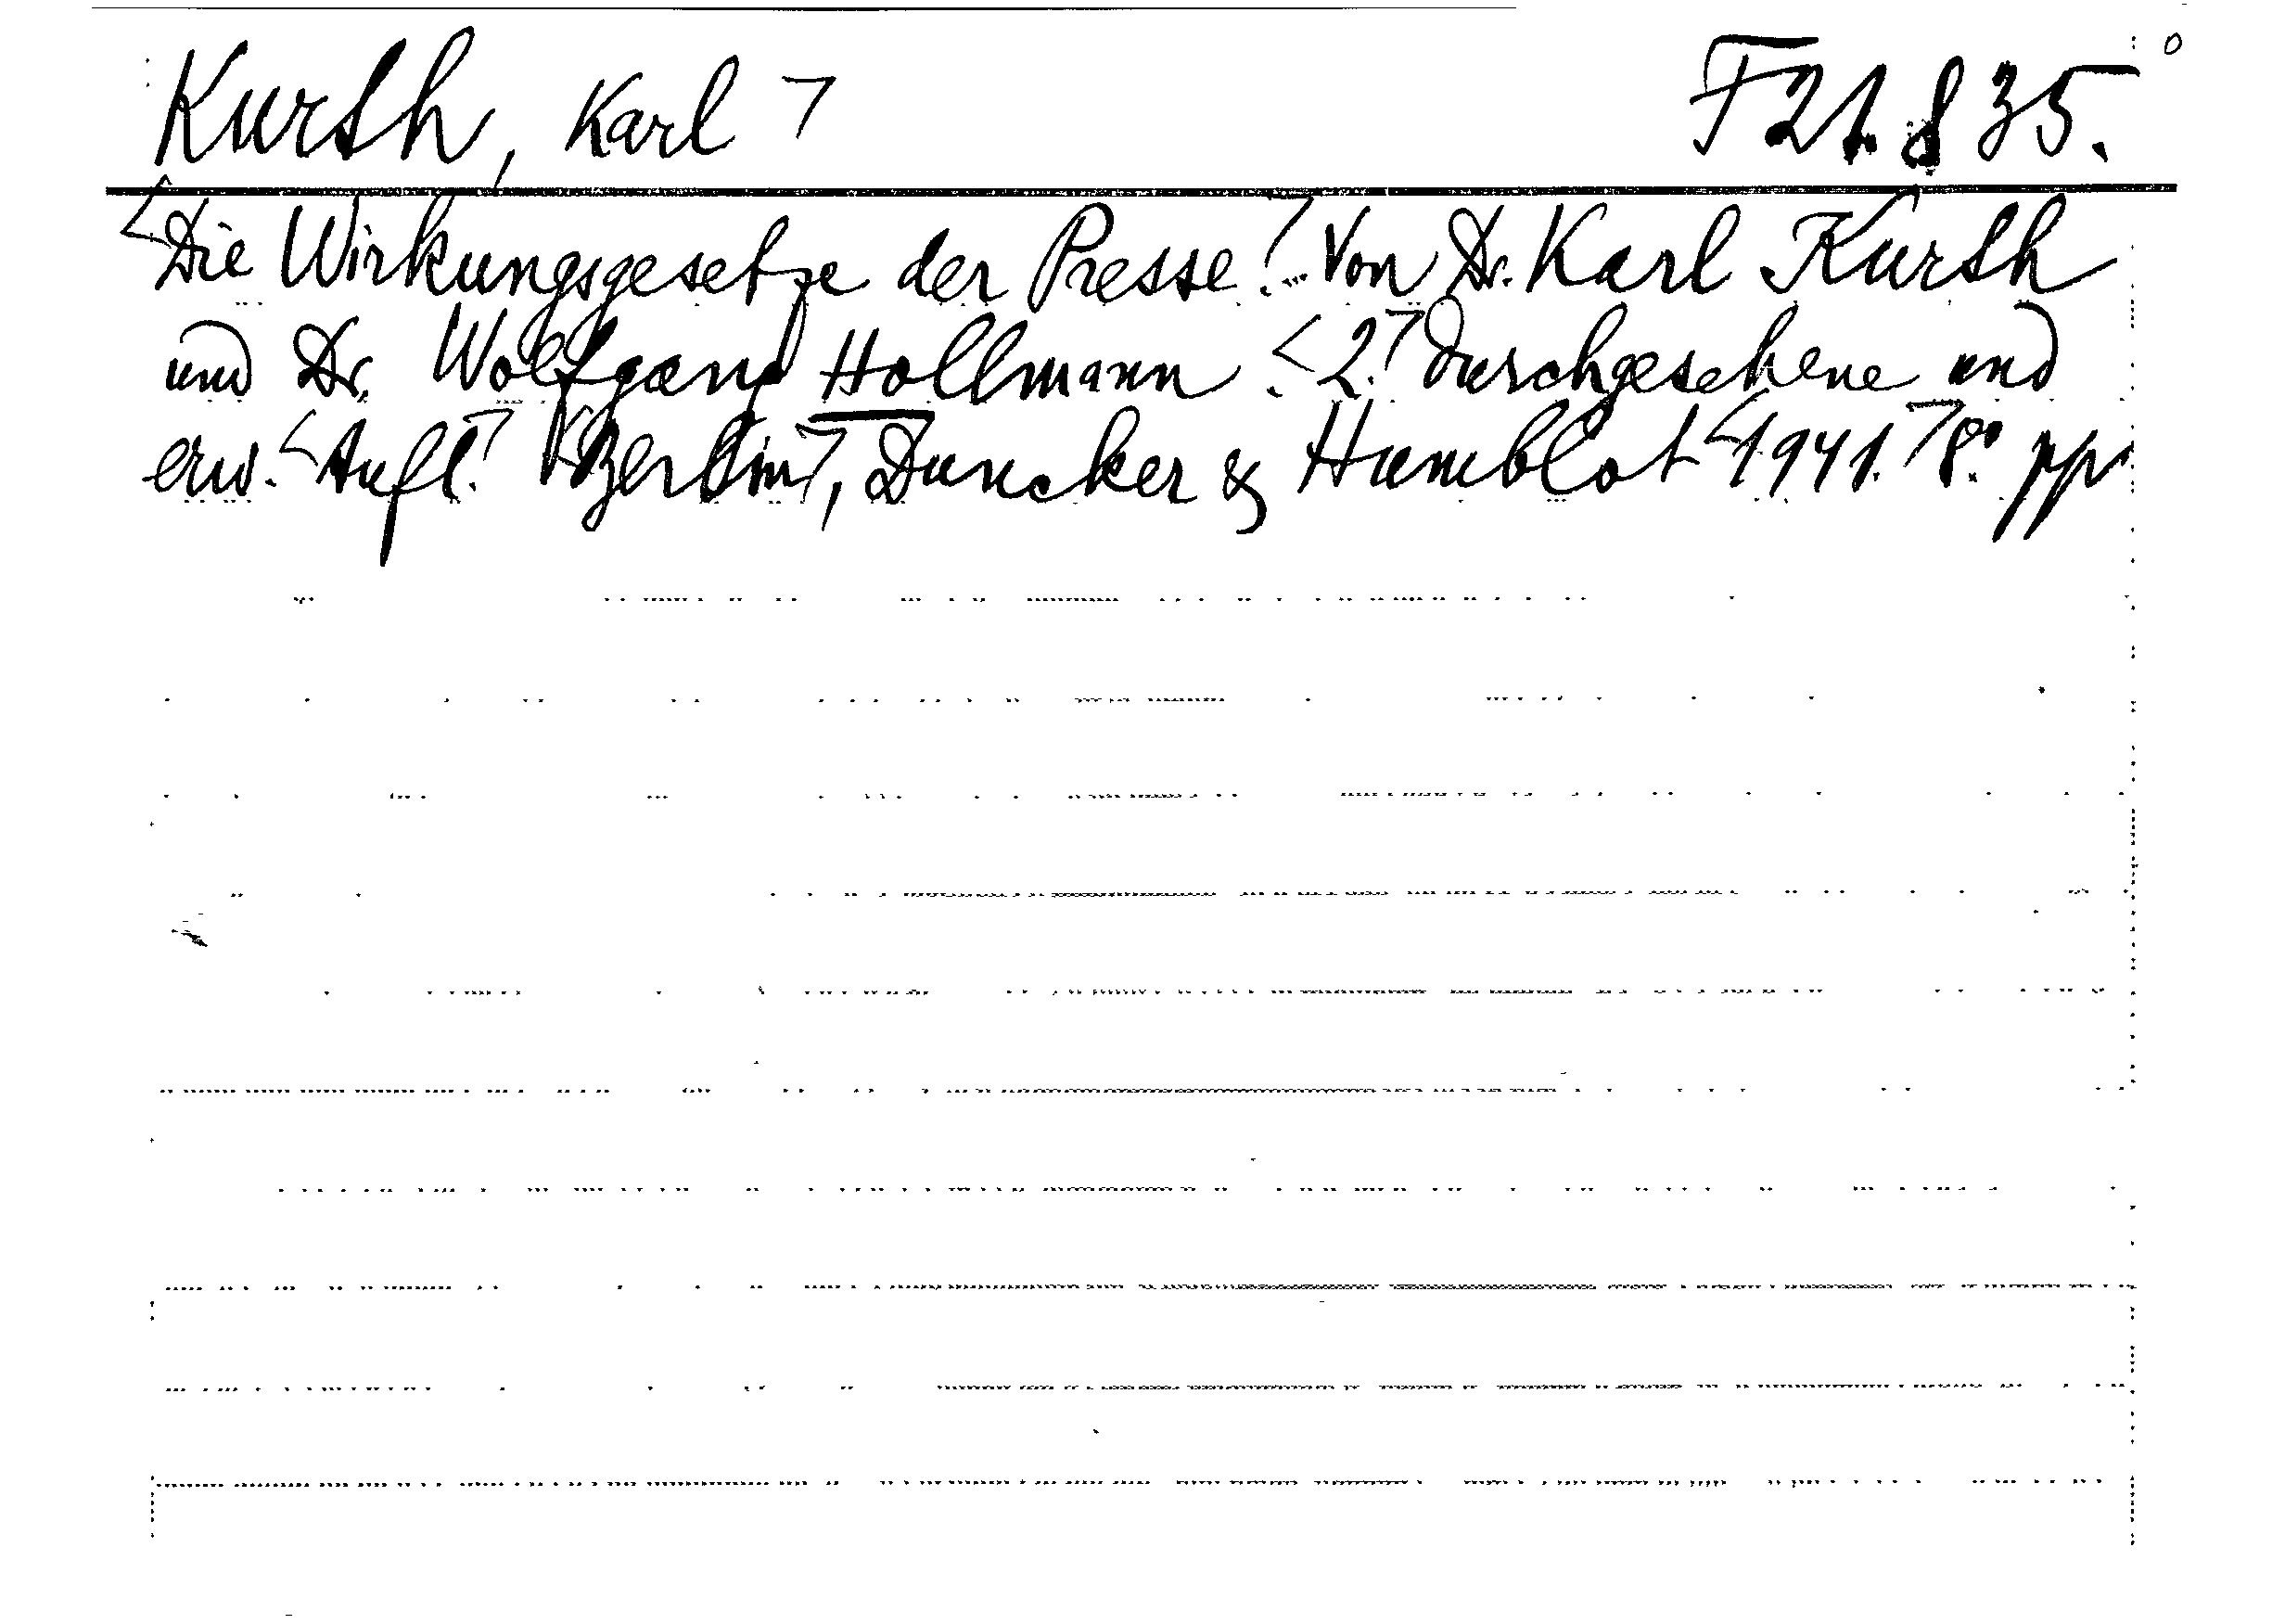 Kursh, Karl ⌉ F 21.835.
<Die Wirkungsgesetze der Presse.⌉ Von Dr. Karl Kursh
und Dr. Wolfgang Hollmann. <2.⌉ durchgesehene und
erw. <Aufl.⌉ <Berlin⌉, Duncker & Humblot <1941.⌉ 8° pp